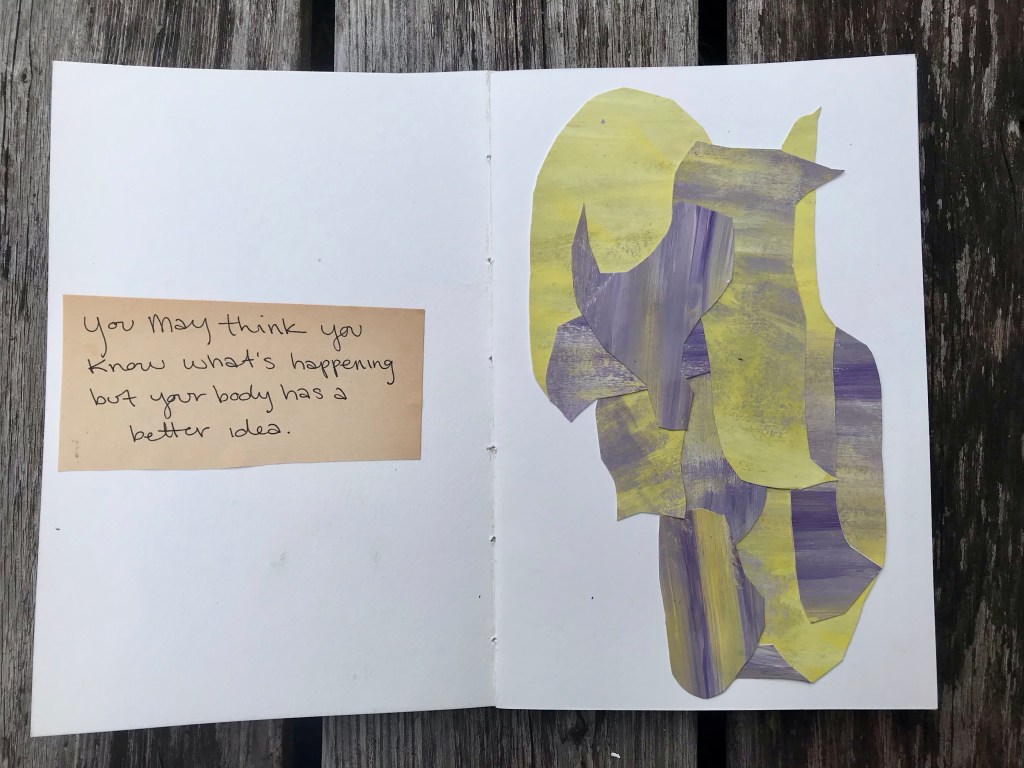 you may think you
know what's happening
but your body has a
better idea.